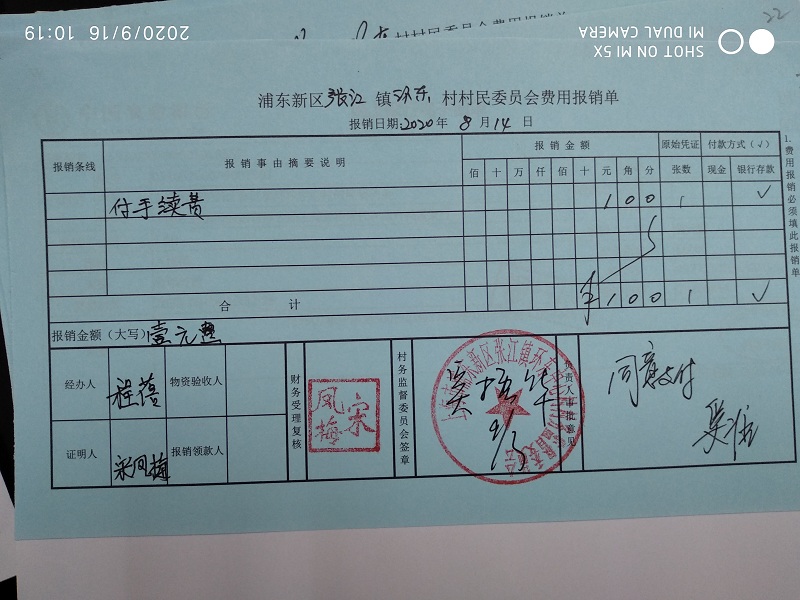 2020/9/16 10:19
SHOT ON MI 5X
MI DUAL CAMERA
22
村村民委员会费用报销单
浦东新区张江镇环东村村民委员会费用报销单
报销日期:2020年8月14日
报销条线 报销事由摘要说明 报销金额 原始凭证 付款方式(√)
佰 十 万 仟 佰 十 元 角 分 张数 现金 银行存款
付手续费 1 0 0 1 √
合计 ¥ 1 0 0 1 √
报销金额(大写) 壹元整
经办人 程蓓 物资验收人
证明人 宋凤梅 报销领款人
财务受理复核
宋凤梅
村务监督委员会签章
9/3
负责人审批意见
同意支付
1.费用报销必须填此报销单